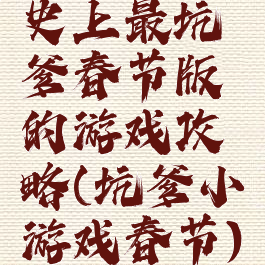 史上最坑
爹春节版
的游戏攻
略(坑爹小
游戏春节)